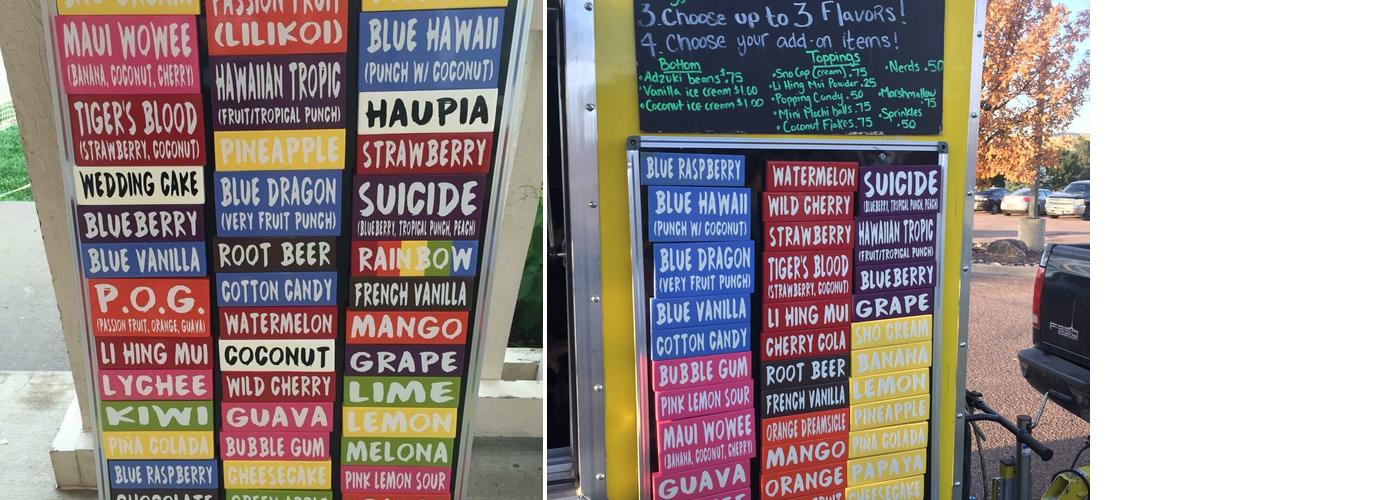 SNO CREAM
MAUI WOWEE
(BANANA, COCONUT, CHERRY)
TIGER'S BLOOD
(STRAWBERRY, COCONUT)
WEDDING CAKE
BLUEBERRY
BLUE VANILLA
P.O.G.
(PASSION FRUIT, ORANGE, GUAVA)
LI HING MUI
LYCHEE
KIWI
PIÑA COLADA
BLUE RASPBERRY
CHOCOLATE
PASSION FRUIT
(LILIKOI)
HAWAIIAN TROPIC
(FRUIT/TROPICAL PUNCH)
PINEAPPLE
BLUE DRAGON
(VERY FRUIT PUNCH)
ROOT BEER
COTTON CANDY
WATERMELON
COCONUT
WILD CHERRY
GUAVA
BUBBLE GUM
CHEESECAKE
GREEN APPLE
BLUE HAWAII
(PUNCH W/ COCONUT)
HAUPIA
STRAWBERRY
SUICIDE
(BLUEBERRY, TROPICAL PUNCH, PEACH)
RAINBOW
FRENCH VANILLA
MANGO
GRAPE
LIME
LEMON
MELONA
PINK LEMON SOUR
3. Choose up to 3 Flavors!
4. Choose your add-on items!
Bottom
•Adzuki beans $.75
•Vanilla ice cream $1.00
•Coconut ice cream $1.00
Toppings
•Sno Cap (cream) .75
•Li Hing Mui Powder .25
•Popping Candy .50
•Mini Mochi balls .75
•Coconut Flakes .75
•Nerds .50
•Marshmallow
.75
•Sprinkles
.50
BLUE RASPBERRY
BLUE HAWAII
(PUNCH W/ COCONUT)
BLUE DRAGON
(VERY FRUIT PUNCH)
BLUE VANILLA
COTTON CANDY
BUBBLE GUM
PINK LEMON SOUR
MAUI WOWEE
(BANANA, COCONUT, CHERRY)
GUAVA
WATERMELON
WILD CHERRY
STRAWBERRY
TIGER'S BLOOD
(STRAWBERRY, COCONUT)
LI HING MUI
CHERRY COLA
ROOT BEER
FRENCH VANILLA
ORANGE DREAMSICLE
MANGO
ORANGE
SUICIDE
(BLUEBERRY, TROPICAL PUNCH, PEACH)
HAWAIIAN TROPIC
(FRUIT/TROPICAL PUNCH)
BLUEBERRY
GRAPE
SNO CREAM
BANANA
LEMON
PINEAPPLE
PIÑA COLADA
PAPAYA
CHEESECAKE